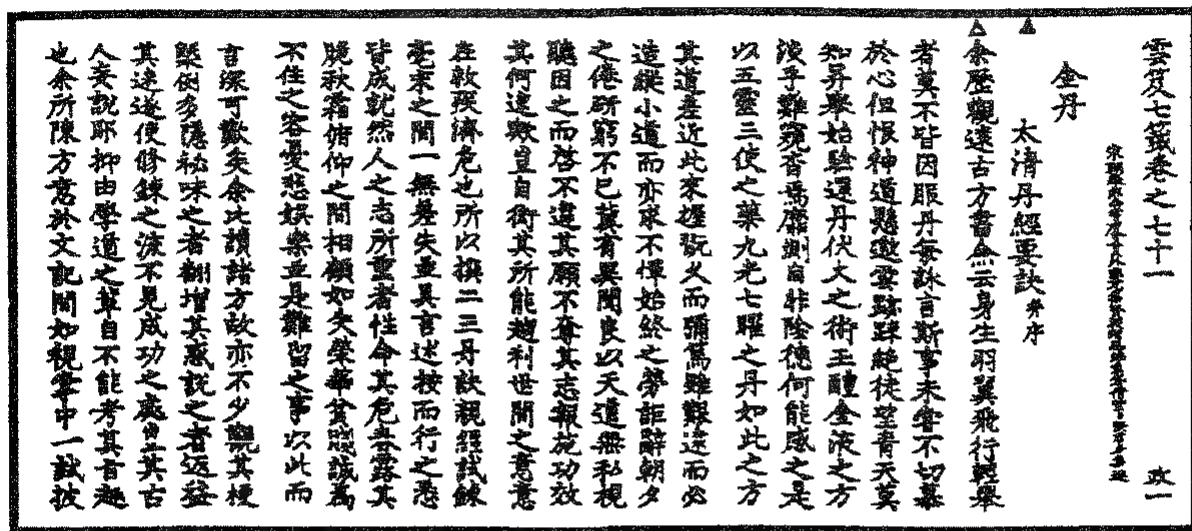 雲笈七籤卷之七十一 政一
金丹
太清丹經要訣 并序
余歷觀遠古方書僉云身生羽翼飛行輕舉
者莫不皆因服丹每詠言斯事未嘗不切慕
於心但恨神道懸邈雲跡踈絕徒望青天莫
知昇舉始驗還丹伏火之術玉醴金液之方
淡乎難窺杳焉靡測自非陰德何能感之是
以五靈三使之藥九光七曜之丹如此之方
其道差近此來握翫久而彌篤雖艱遠而必
造縱小道而亦求不憚始終之勞詎辭朝夕
之倦研窮不已冀有異聞良以天道無私視
聽因之而啓不違其願不奪其志報施功效
其何速歟豈自衒其所能趨利世間之意意
在救疾濟危也所以撰二三丹訣親經試鍊
毫末之間一無差失並具言述按而行之悉
皆成就然人之志所重者性命其危春露其
脆秋霜俯仰之間相顧如失榮華貧賤誠為
不住之客憂悲娛樂並是難留之事以此而
言深可歎矣余比讀諸方故亦不少觀其梗
槩例多隱祕味之者翻增其惑說之者返益
其迷遂使修鍊之流不見成功之處豈其古
人妄說耶抑由學道之輩自不能考其旨趣
也余所陳方意於文記間如視掌中一試披